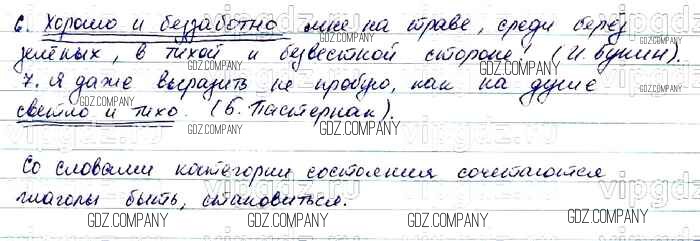 6. Хорошо и беззаботно мне на траве, среди берёз
зелёных, в тихой и безвестной стороне! (И. Бунин).
7. Я даже выразить не пробую, как на душе
светло и тихо. (Б. Пастернак).
Со словами категории состояния сочетаются
глаголы быть, становиться.
GDZ.COMPANY